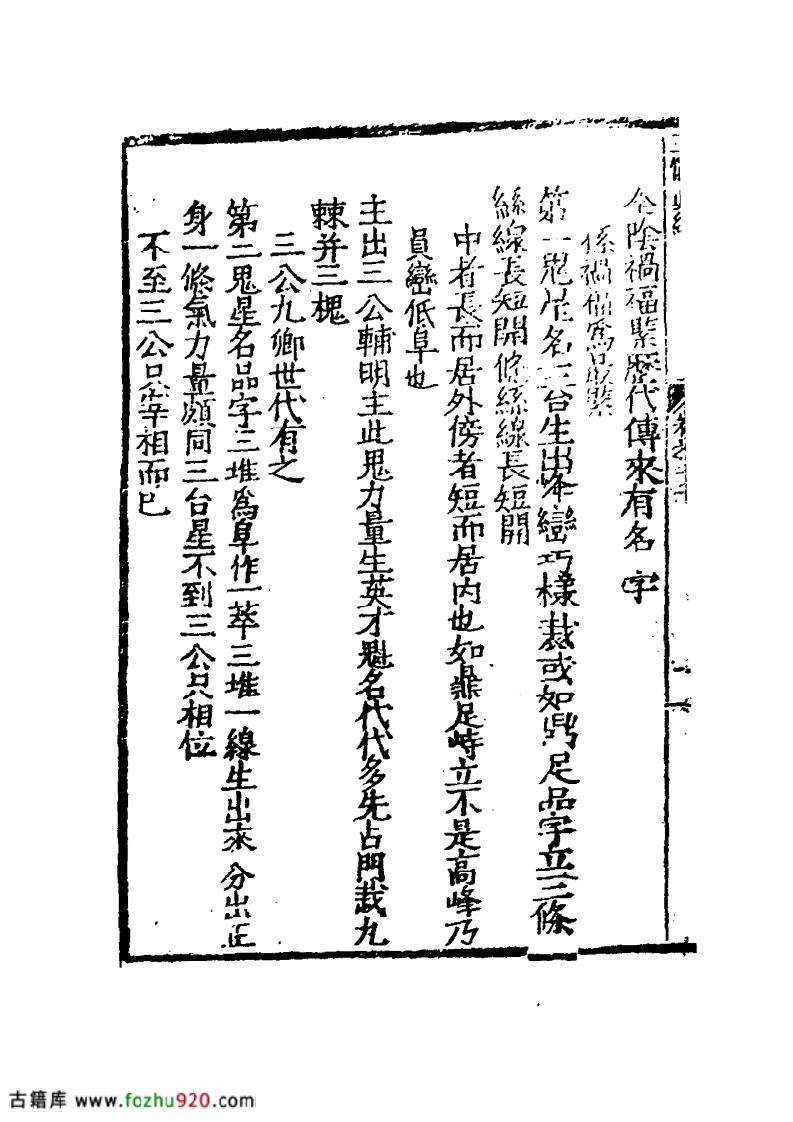 陰禍福案歷代傳來有名字
係禍福
第一鬼星名三台生出峰巒巧樣裁或如鼎足品字立三條
絲線長短開條絲線長短開
中者長而居外傍者短而居内也如鼎足峙立不是高峰乃
員巒低阜也
主出三公輔明主此鬼力量生英才魁名代代多先占門栽九
棘并三槐
三公九卿世代有之
第二鬼星名品字三堆爲阜作一萃三堆一線生出來分出正
身一條氣力量頗同三台星不到三公只相位
不至三公只宰相而已
古籍库 www.fozhu920.com